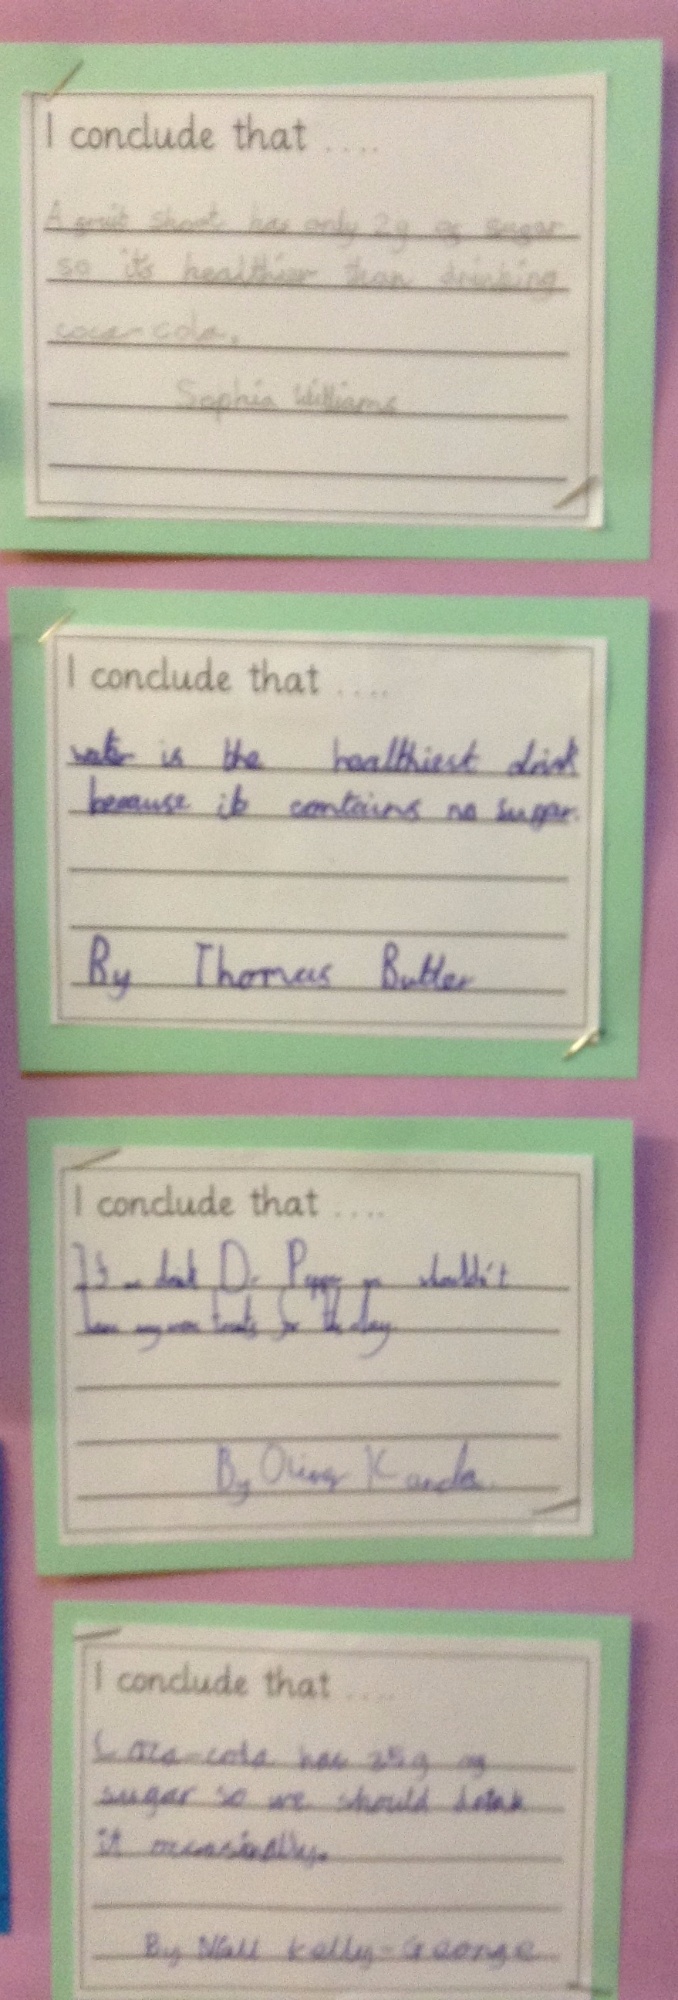 I conclude that ....
A fruit shoot has only 2g of sugar
so its healthier than drinking
coca-cola.
Sophia Williams
I conclude that ....
water is the healthiest drink
because it contains no sugar.
By Thomas Butler
I conclude that ....
If we drink Dr Pepper we shouldn't
have any more treats for the day
By Oliver
I conclude that ....
Coca-cola has 35g of
sugar so we should drink
it occasionally.
By Niall Kelly-George